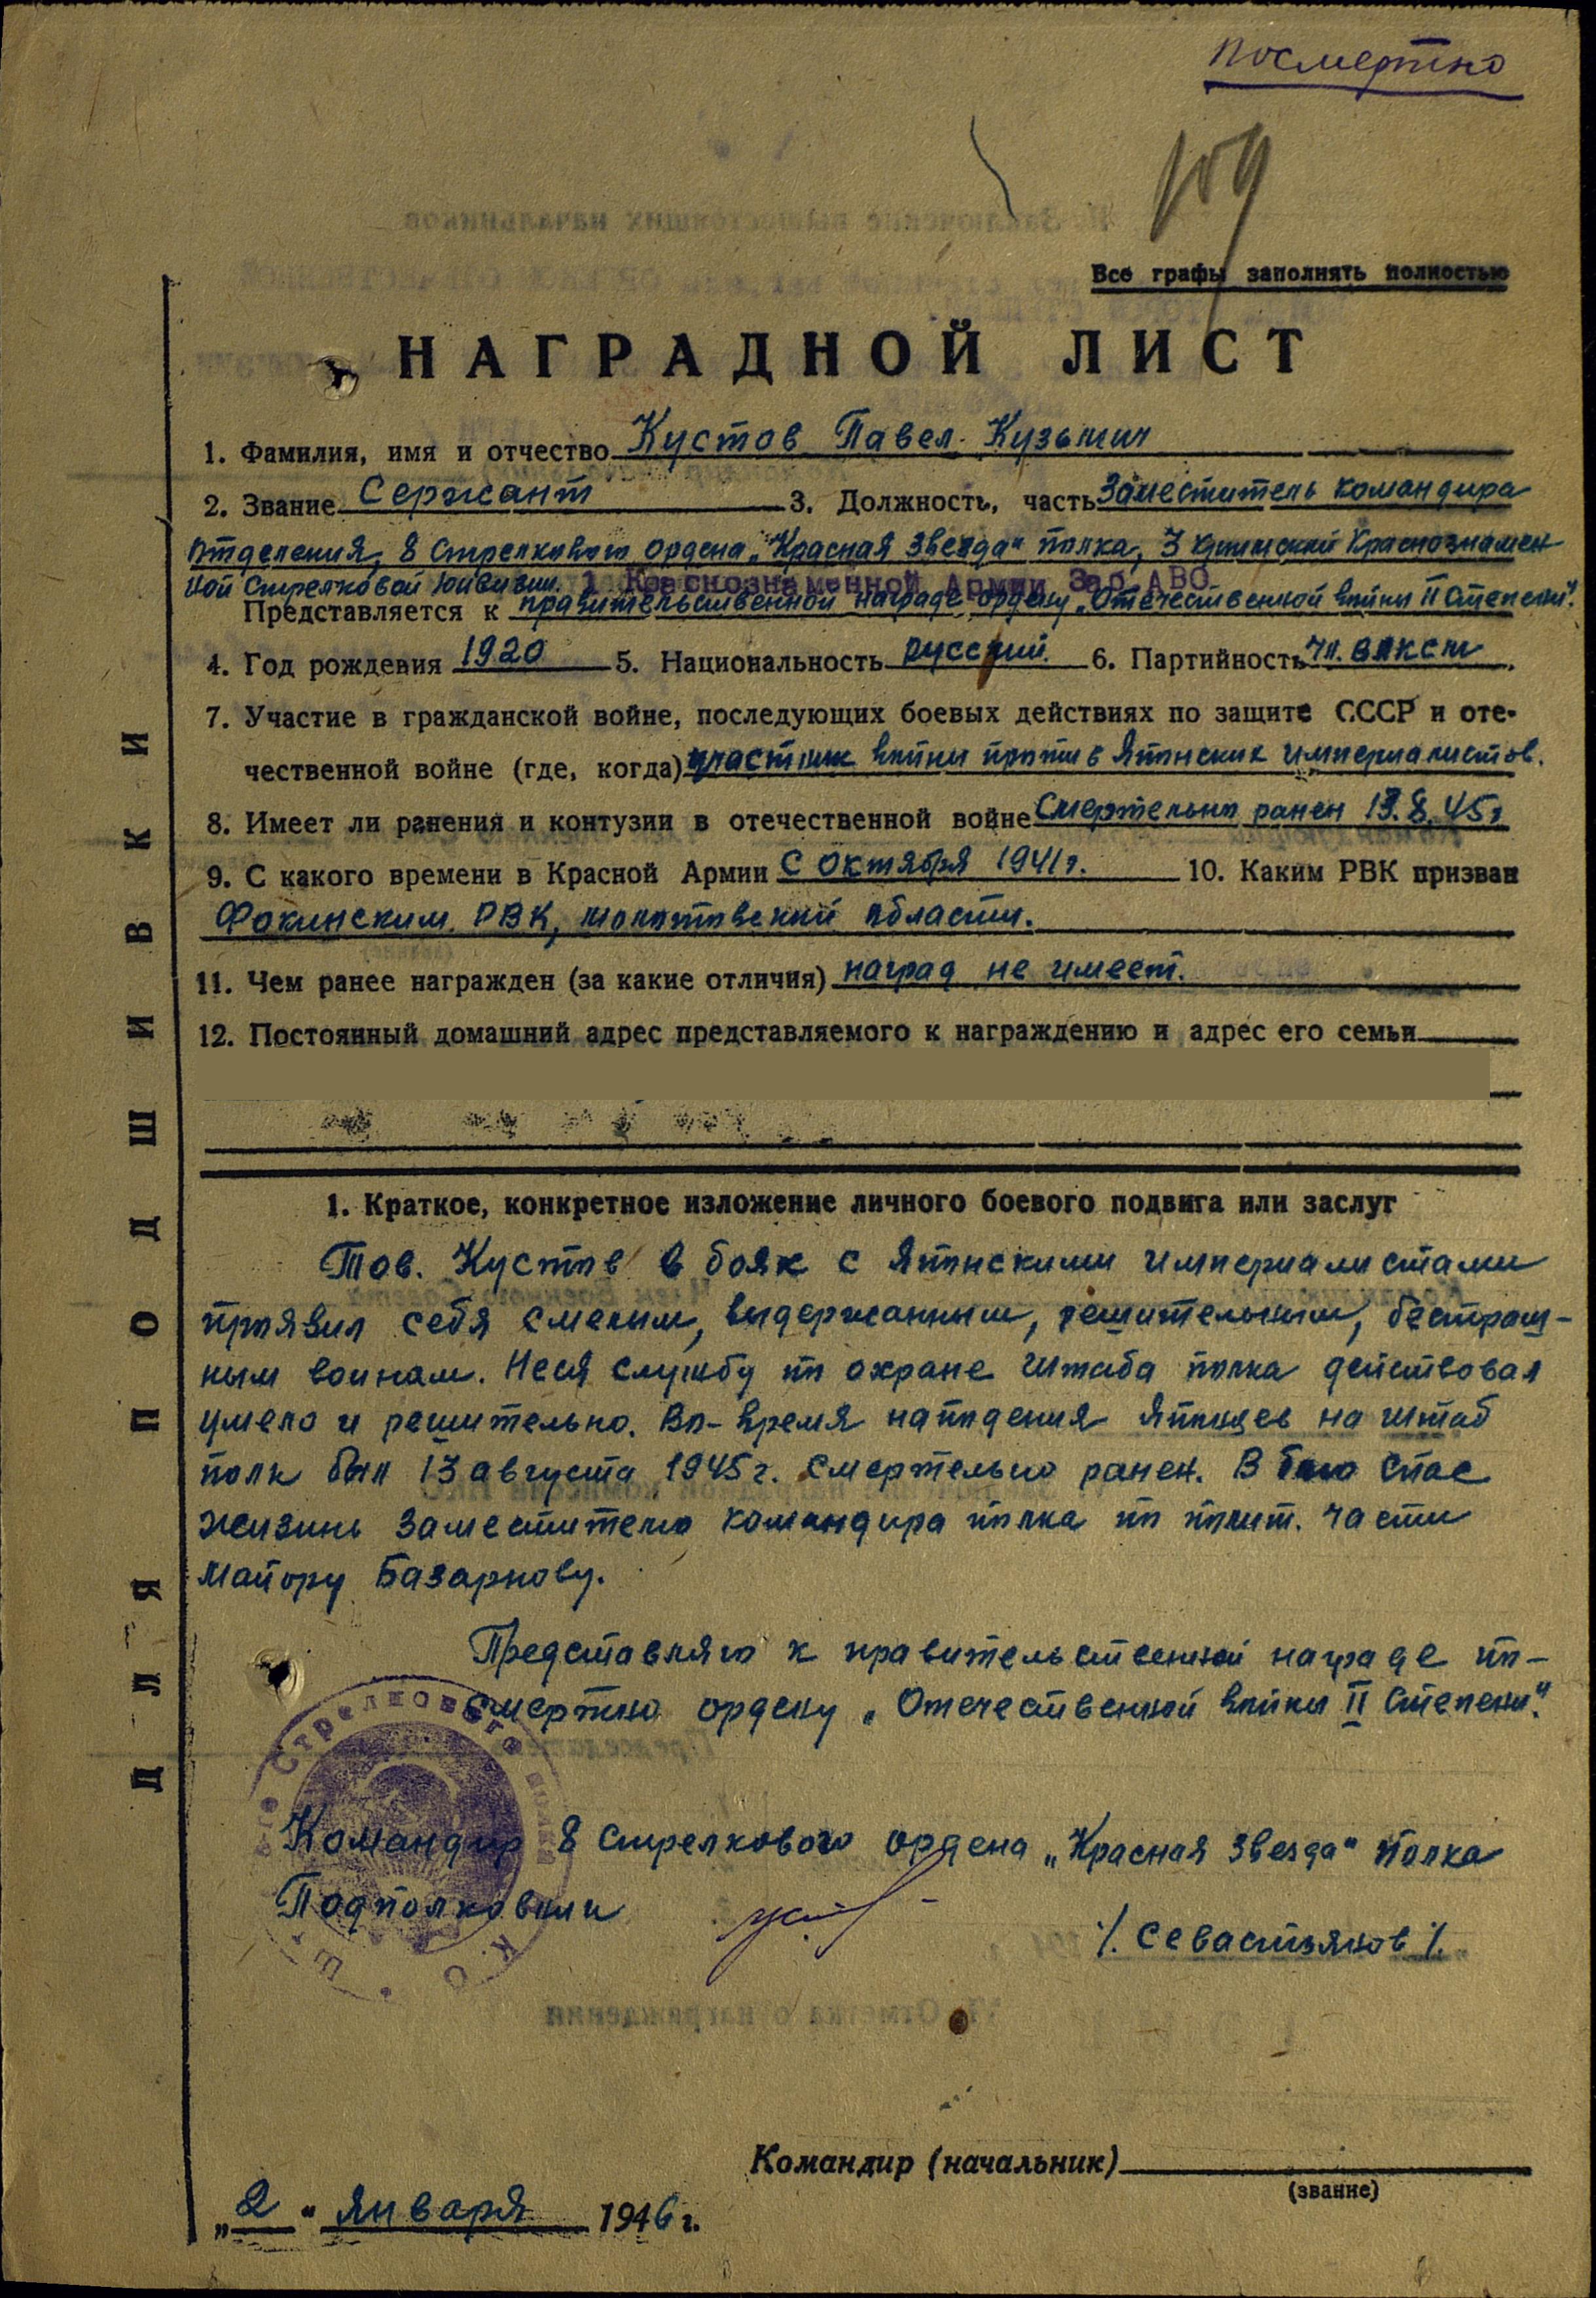 посмертно
109
Все графы заполнять полностью
НАГРАДНОЙ ЛИСТ
1. Фамилия, имя и отчество Кустов Павел Кузьмич
2. Звание Сержант 3. Должность, часть Заместитель командира
отделения, 8 Стрелкового ордена „Красная Звезда" полка, 3 Краснознамен
ной Стрелковой дивизии. 1 Краснознаменной Армии Заб.АВО
Представляется к правительственной награде ордену „Отечественной войны II Степени".
4. Год рождения 1920 5. Национальность русский 6. Партийность чл. ВЛКСМ
7. Участие в гражданской войне, последующих боевых действиях по защите СССР и оте-
чественной войне (где, когда) участник войны против Японских империалистов.
8. Имеет ли ранения и контузии в отечественной войне Смертельно ранен 13.8.45г
9. С какого времени в Красной Армии с октября 1941г. 10. Каким РВК призван
Фокинским РВК, молотовской области.
11. Чем ранее награжден (за какие отличия) наград не имеет.
12. Постоянный домашний адрес представляемого к награждению и адрес его семьи
1. Краткое, конкретное изложение личного боевого подвига или заслуг
Тов. Кустов в боях с Японскими империалистами
проявил себя смелым, выдержанным, решительным, бестраш-
ным воином. Неся службу по охране штаба полка действовал
умело и решительно. Во-время нападения Японцев на штаб
полк был 13 августа 1945г. смертельно ранен. В бою спас
жизнь заместителю командира полка по полит. части
майору Базарнову.
Представляю к правительственной награде по-
смертно ордену „Отечественной войны II Степени".
Командир 8 стрелкового ордена „Красная Звезда" полка
Подполковник
/. Севастьянов /.
Командир (начальник)
(звание)
„2" января 1946 г.
ДЛЯ ПОДШИВКИ
Стрелкового полка